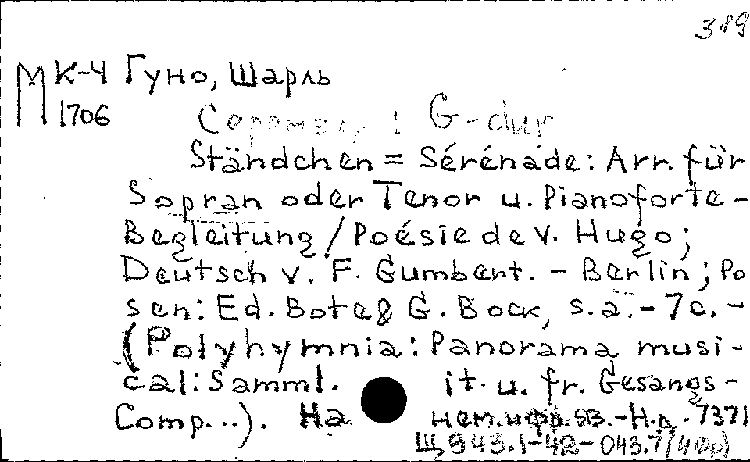 389
М К-4 Гуно, Шарль
1706
G-dur
Ständchen = Sérénade: Arr. für
Sopran oder Tenor u. Pianoforte-
Begleitung / Poésie de V. Hugo;
Deutsch v. F. Gumbert. - Berlin; Po
sen: Ed. Bote & G. Bock, s.a. - 7 с. -
(Polyhymnia: Panorama musi-
cal: Samml. it. u. fr. Gesangs-
Comp...). На нем. и фр. яз. - Н.д. 7371
Щ943.1-42-043.7